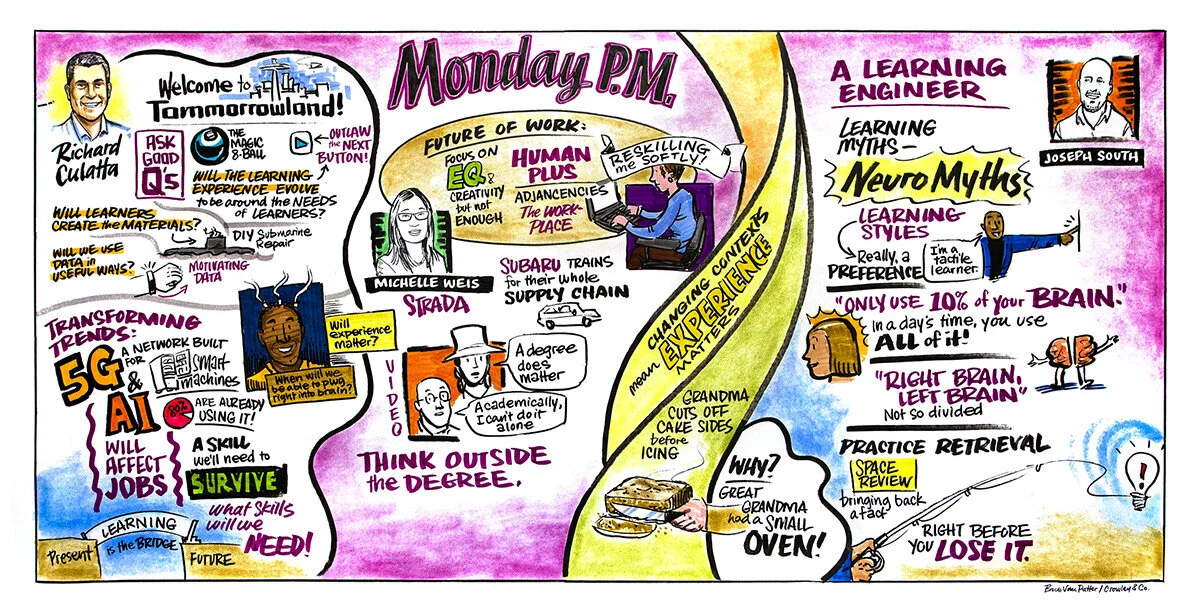 Monday P.M.
Richard
Culatta
Welcome to
Tommorrowland!
ASK
GOOD
Q'S
THE
MAGIC
8-BALL
OUTLAW
the NEXT
BUTTON!
WILL THE LEARNING
EXPERIENCE EVOLVE
to be around the NEEDS
of LEARNERS?
WILL LEARNERS
CREATE the MATERIALS?
DIY Submarine
Repair
WILL WE USE
DATA in
USEFUL WAYS?
MOTIVATING
DATA
TRANSFORMING
TRENDS:
5G
A NETWORK BUILT
FOR
smart
machines
&
AI
80%
ARE ALREADY
USING IT!
WILL
AFFECT
JOBS
A SKILL
we'll need to
SURVIVE
what SKILLS
will we
NEED!
Will
experience
matter?
When will we
be able to plug
right into brain?
LEARNING
is the BRIDGE
Present
FUTURE
FUTURE OF WORK:
FOCUS ON
EQ &
CREATIVITY
but not
ENOUGH
HUMAN
PLUS
ADJANCENCIES
The WORK-
PLACE
RESKILLING
me SOFTLY!
MICHELLE WEIS
STRADA
SUBARU TRAINS
for their whole
SUPPLY CHAIN
VIDEO
A degree
does
matter
Academically,
I can't do it
alone
THINK OUTSIDE
the DEGREE.
CHANGING CONTEXTS
mean EXPERIENCE
MATTERS
GRANDMA
CUTS OFF
CAKE SIDES
before
ICING
WHY?
GREAT
GRANDMA
had a SMALL
OVEN!
A LEARNING
ENGINEER
JOSEPH SOUTH
LEARNING
MYTHS—
NeuroMyths
LEARNING
STYLES
Really, a
PREFERENCE
I'm a
tactile
learner.
"ONLY USE 10% of your BRAIN."
In a day's time, you use
ALL of it!
"RIGHT BRAIN,
LEFT BRAIN"
Not so divided
PRACTICE RETRIEVAL
SPACE
REVIEW
bringing back
a fact
"RIGHT BEFORE
YOU LOSE IT.
!
Bruce Van Patter / Crowley & Co.